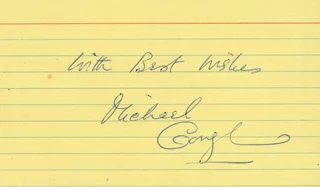 With Best Wishes
Michael
Gough